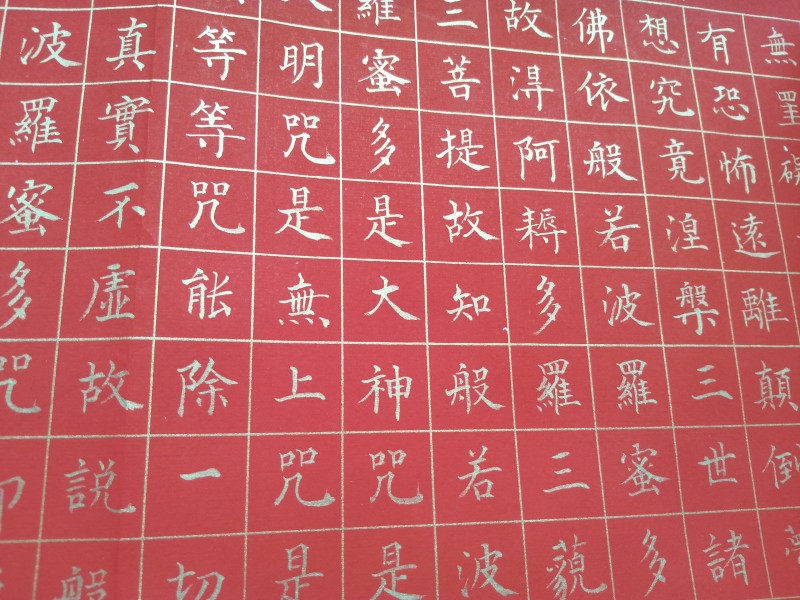 無罣礙
有恐怖遠離顛倒夢
想究竟湟槃三世諸
佛依般若波羅蜜多
故淂阿耨多羅三藐
三菩提故知般若波
羅蜜多是大神咒是
明咒是無上咒是
等等咒能除一切
真實不虛故説般
波羅蜜多咒即